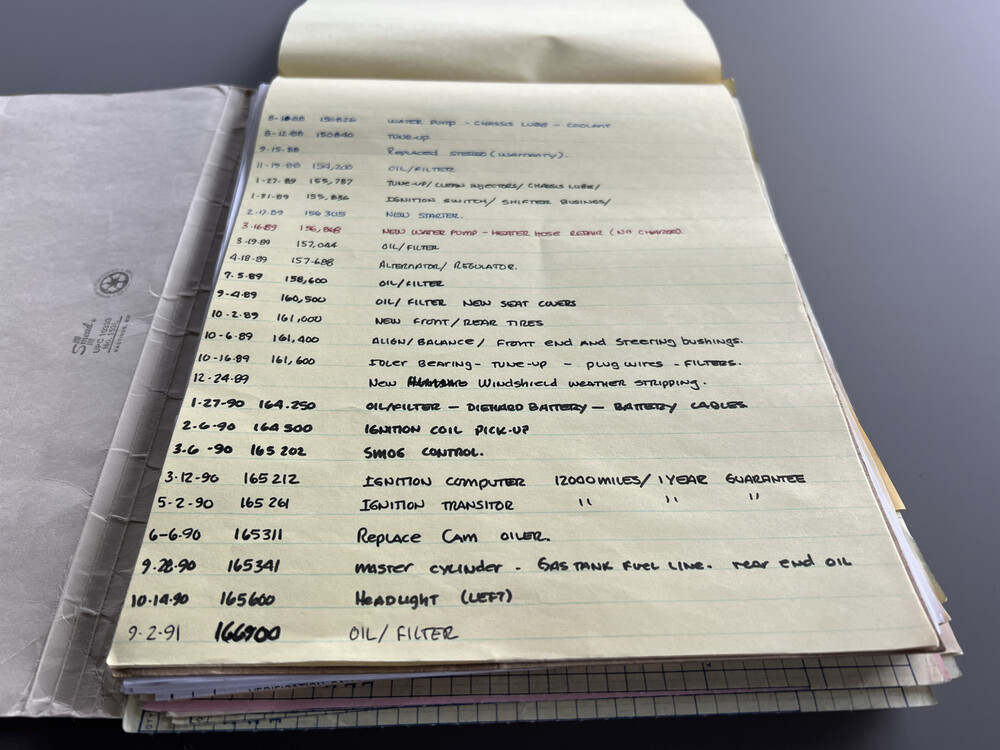 8-10-88 150826 WATER PUMP - CHASSIS LUBE - COOLANT
8-12-88 150840 TUNE-UP
9-15-88 Replaced STEREO (WARRANTY).
11-19-88 154,200 OIL/FILTER
1-27-89 155,787 TUNE-UP/CLEAN INJECTORS/ CHASSIS LUBE/
1-31-89 155,836 IGNITION SWITCH/ SHIFTER BUSINGS/
2-17-89 156305 NEW STARTER.
3-16-89 156,868 NEW WATER PUMP - HEATER HOSE REPAIR (NO CHARGE).
3-19-89 157,044 OIL/FILTER
4-18-89 157-688 ALTERNATOR/ REGULATOR.
7-5-89 158,600 OIL/FILTER
9-4-89 160,500 OIL/ FILTER NEW SEAT COVERS
10-2-89 161,000 NEW FRONT/REAR TIRES
10-6-89 161,400 ALIGN/BALANCE/ FRONT END AND STEERING BUSHINGS.
10-16-89 161,600 IDLER BEARING- TUNE-UP - PLUG WIRES - FILTERS.
12-24-89 NEW Windshield WEATHER STRIPPING.
1-27-90 164.250 OIL/FILTER - DIEHARD BATTERY - BATTERY CABLES
2-6-90 164500 IGNITION COIL PICK-UP
3-6-90 165202 SMOG CONTROL.
3-12-90 165212 IGNITION COMPUTER 12000 MILES/ 1 YEAR GUARANTEE
5-2-90 165261 IGNITION TRANSITOR " " "
6-6-90 165311 Replace Cam OILER.
9-28-90 165341 MASTER CYLINDER - GAS TANK FUEL LINE. rear end OIL
10-14-90 165600 HEADLIGHT (LEFT)
9-2-91 166900 OIL/ FILTER
Smead
UPC 10330
HASTINGS, MN